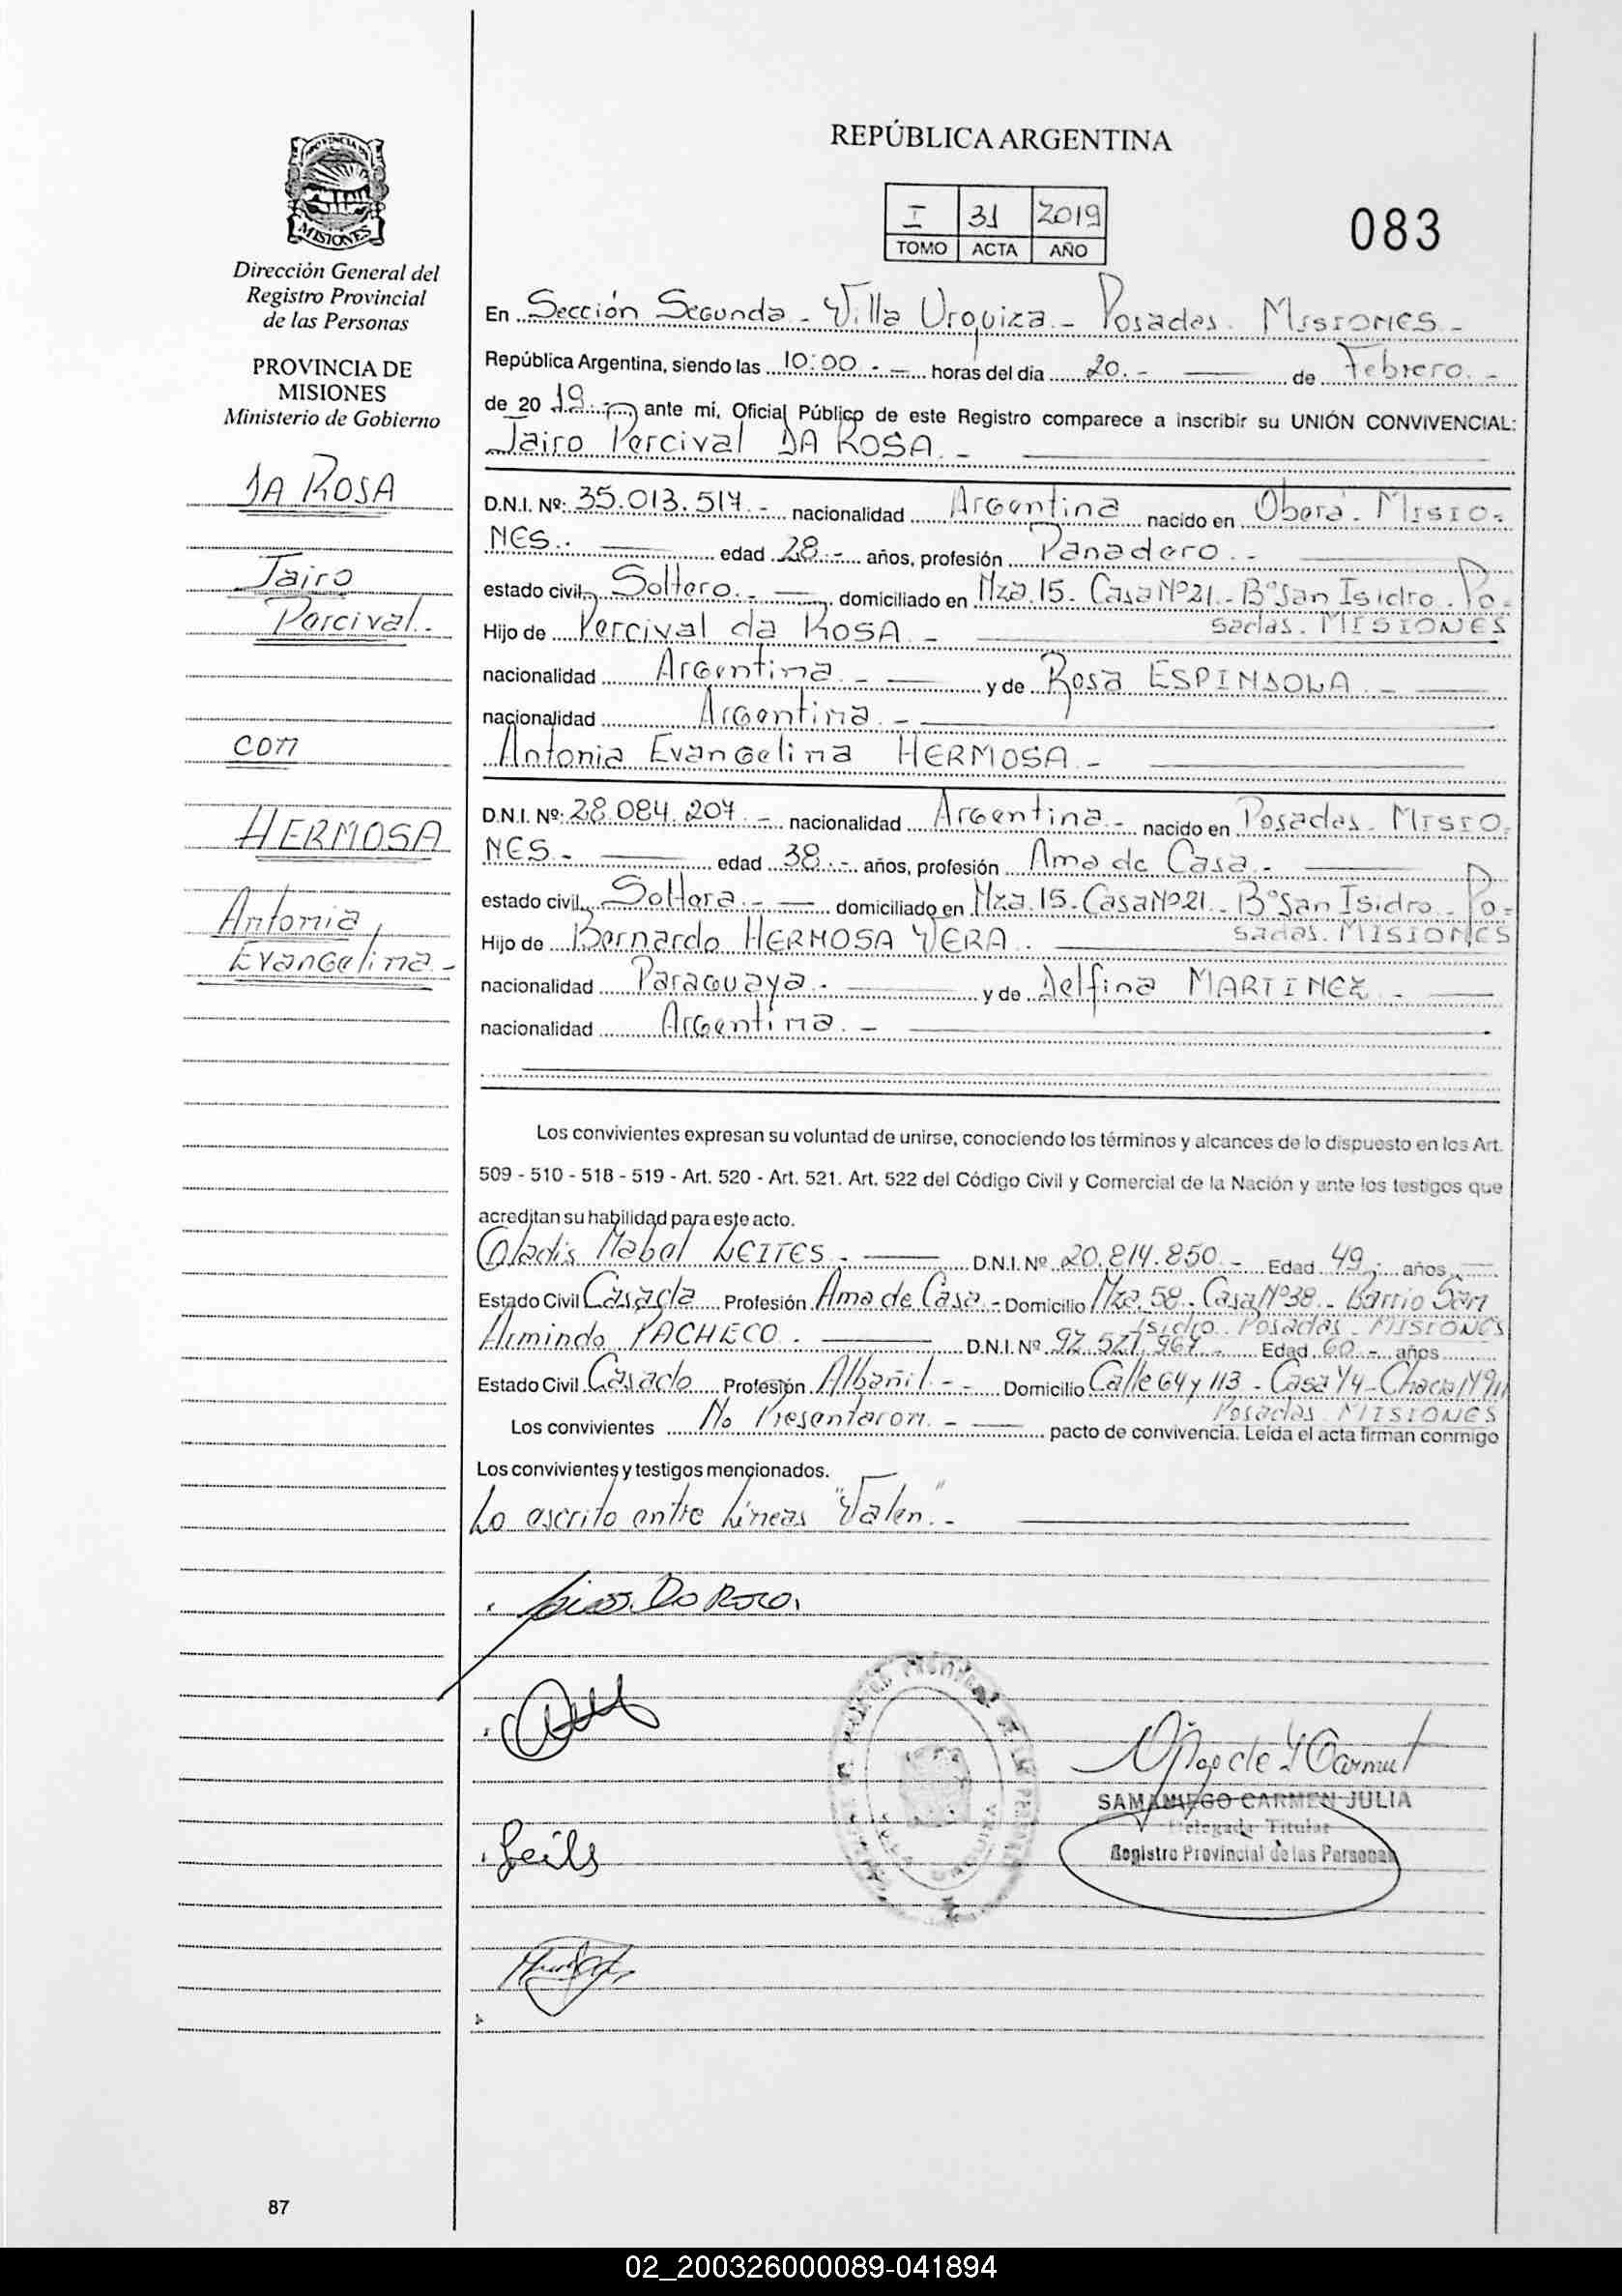 REPÚBLICA ARGENTINA
I 31 2019
TOMO ACTA AÑO
083
MISIONES
Dirección General del
Registro Provincial
de las Personas
PROVINCIA DE
MISIONES
Ministerio de Gobierno
DA ROSA
Jairo
Percival.-
con
HERMOSA
Antonia
Evangelina.-
En Sección Segunda - Villa Urquiza.- Posadas. Misiones.-
República Argentina, siendo las 10:00.- horas del día 20.- de Febrero.-
de 2019.- ante mí, Oficial Público de este Registro comparece a inscribir su UNIÓN CONVIVENCIAL:
Jairo Percival DA ROSA.-
D.N.I. Nº: 35.013.517.- nacionalidad Argentina nacido en Oberá. Misio-
nes.- edad 28.- años, profesión Panadero.-
estado civil Soltero.- domiciliado en Mza.15. Casa Nº21.- Bº San Isidro. Po-
sadas. MISIONES
Hijo de Percival da ROSA.-
nacionalidad Argentina.- y de Rosa ESPINDOLA.-
nacionalidad Argentina.-
Antonia Evangelina HERMOSA.-
D.N.I. Nº: 28.084.207.- nacionalidad Argentina.- nacido en Posadas. Misio-
nes.- edad 38.- años, profesión Ama de Casa.-
estado civil Soltera.- domiciliado en Mza.15.- Casa Nº21.- Bº San Isidro. Po-
sadas. MISIONES
Hijo de Bernardo HERMOSA VERA.
nacionalidad Paraguaya.- y de Delfina MARTINEZ.-
nacionalidad Argentina.-
Los convivientes expresan su voluntad de unirse, conociendo los términos y alcances de lo dispuesto en los Art.
509 - 510 - 518 - 519 - Art. 520 - Art. 521. Art. 522 del Código Civil y Comercial de la Nación y ante los testigos que
acreditan su habilidad para este acto.
Gladis Mabel LEITES.- D.N.I. Nº 20.814.850.- Edad 49.- años
Estado Civil Casada Profesión Ama de Casa.- Domicilio Mza.58.- Casa Nº38.- Barrio San
Isidro. Posadas. MISIONES
Armindo PACHECO. D.N.I. Nº 92.527.967.- Edad 60.- años
Estado Civil Casado Profesión Albañil.- Domicilio Calle 64 y 113 - Casa 44 - Chacra
Posadas MISIONES
Los convivientes No Presentaron.- pacto de convivencia. Leída el acta firman conmigo
Los convivientes y testigos mencionados.
Lo escrito entre líneas "Valen".-
SAMANIEGO CARMEN JULIA
Delegada Titular
Registro Provincial de las Personas
87
02_200326000089-041894